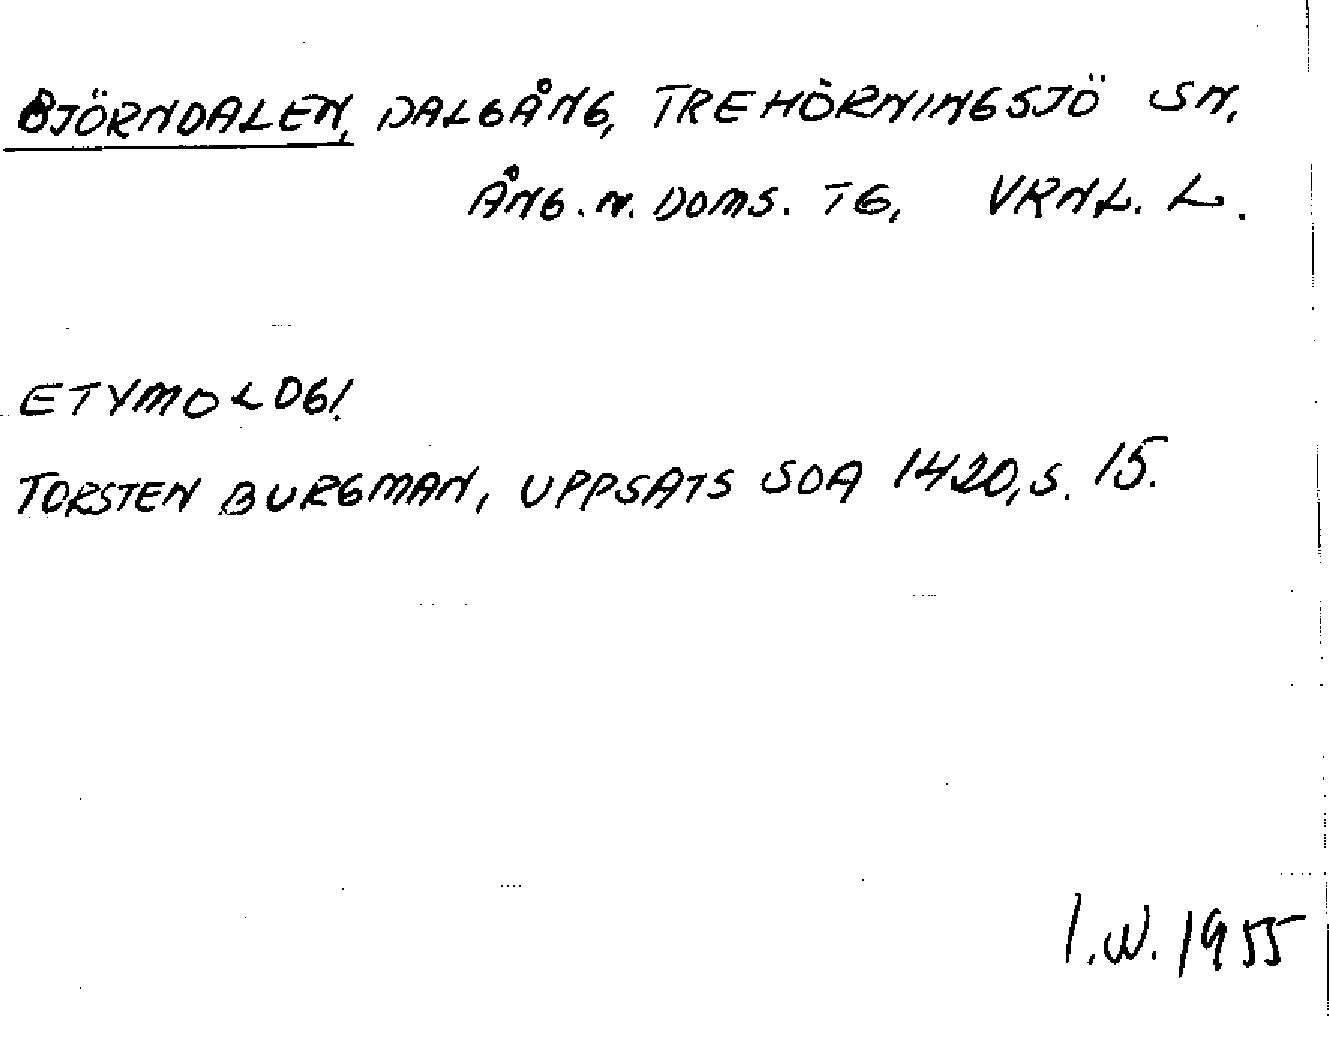 BJÖRNDALEN, DALGÅNG, TREHÖRNINGSJÖ SN,
ÅNG. N. DOMS. TG, VRNL. L.
ETYMOLOGI.
TORSTEN BURGMAN, UPPSATS SOA 1420, S. 15.
I.W. 1955